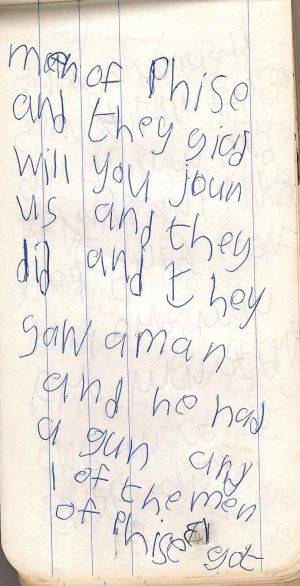 men of Phise
and they giad
will you joun
us and they
did and they
gaw a man
and he had
a gun any
1 of the men
of Phise got